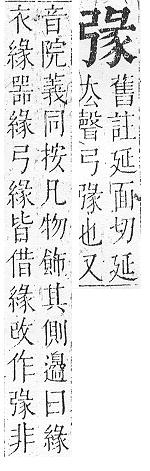 𢐄
舊註延面切延
厺聲弓𢐄也又
音院義同按凡物飾其側邉曰緣
衣緣噐緣弓緣皆借緣改作𢐄非